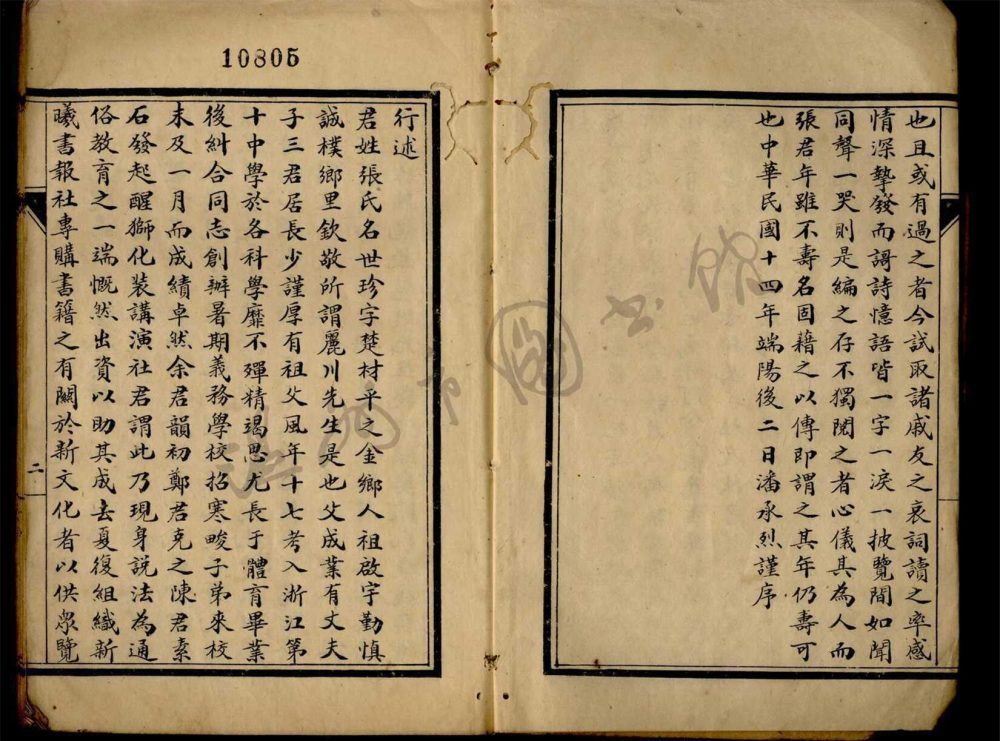 10805
也且或有過之者今試取諸戚友之哀詞讀之率感
情深摯發而謌詩憶語皆一字一淚一披覽間如聞
同聲一哭則是編之存不獨閱之者心儀其為人而
張君年雖不壽名固藉之以傳即謂之其年仍壽可
也中華民國十四年端陽後二日潘承烈謹序
行述
君姓張氏名世珍字楚村平之金鄉人祖啟宇勤慎
誠樸鄉里欽敬所謂麗川先生是也父成業有丈夫
子三君居長少謹厚有祖父風年十七考入浙江第
十中學於各科學靡不殫精竭思尤長于體育畢業
後糾合同志創辦暑期義務學校招寒畯子弟來校
未及一月而成績卓然余君韻初鄭君克之陳君素
石發起醒獅化裝講演社君謂此乃現身說法為通
俗教育之一端慨然出資以助其成去夏復組織新
曦書報社專購書籍之有關於新文化者以供眾覽
二
市圖書館